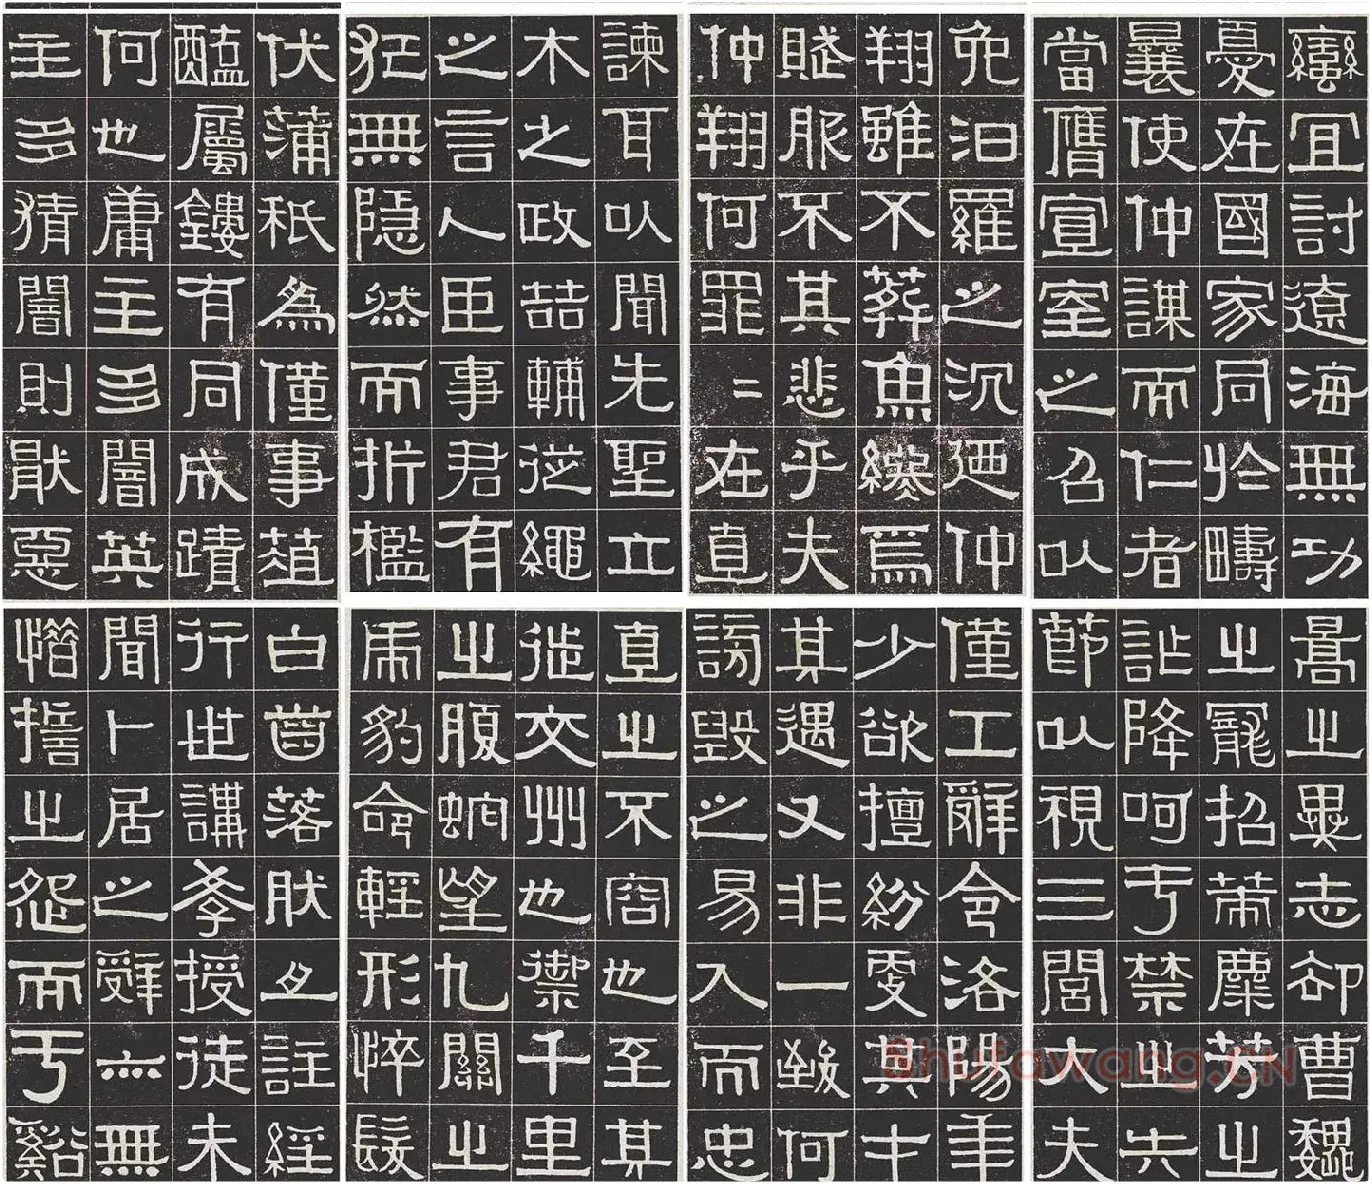 蠻宜討遼海無功
憂在國家同於疇
曩使仲謀而仁者
當膺宣室之召以
免汨羅之沉廼仲
翔雖不葬魚繆焉
賦服不其悲乎夫
仲翔何罪=在直
諫耳以聞先聖立
木之政喆輔從繩
之言人臣事君有
狂無隱然而折檻
伏蒲秖為僅事葅
醢屬鏤有同成蹟
何也庸主多闇英
主多猜闇則猒惡
暠之異志卻曹魏
之寵招麋芳之
詐降呵亏禁之失
節以視三閭大夫
僅工辭令洛陽年
少欲擅紛更其才
其遇又非一致何
謗毀之易入而忠
直之不容也至其
徙交州也禦千里
之腹蛇望九關之
虎豹命輕形悴髮
白齒落肰且註經
行世講孝授徒未
聞卜居之辭亦無
憯擔之怨而亏谿
Shufawang.CN